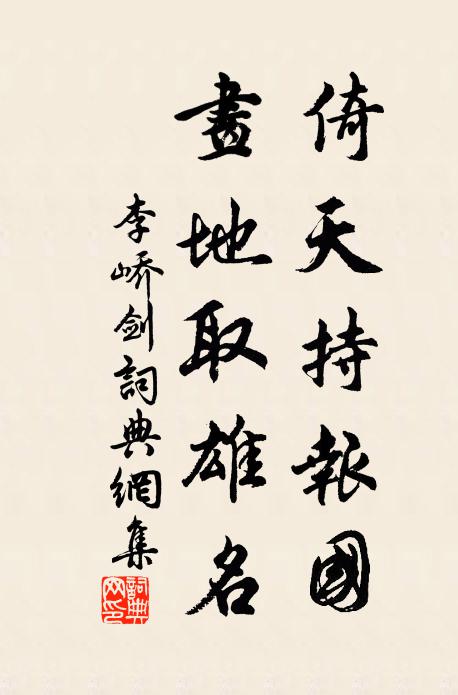 倚天持報國
畫地取雄名
李嶠劍詞典網集
詞典网印